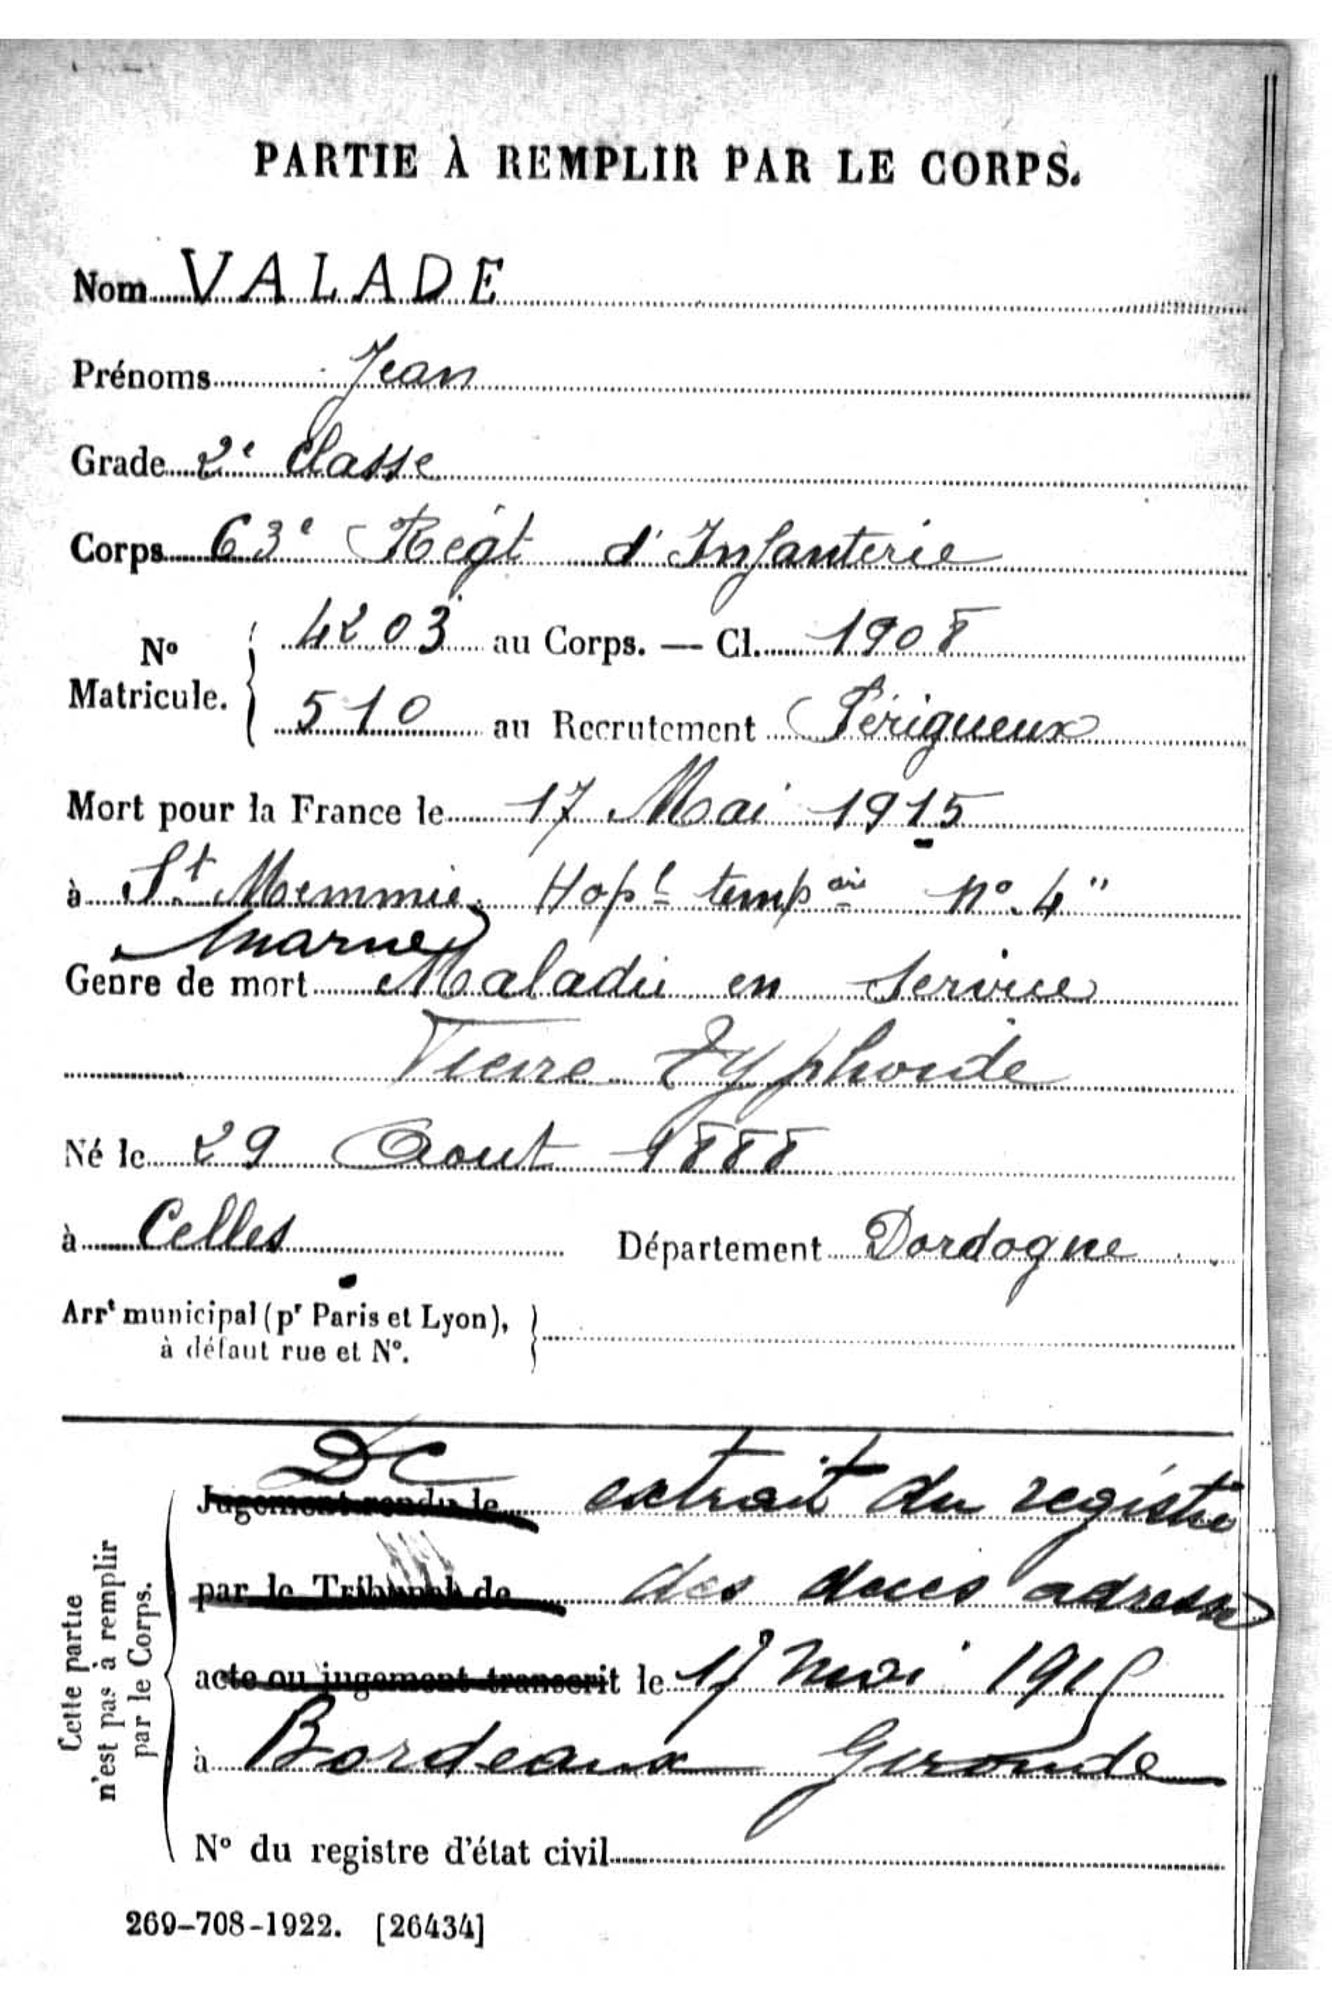 PARTIE À REMPLIR PAR LE CORPS.
Nom VALADE
Prénoms Jean
Grade 2e Classe
Corps 63e Régt d'Infanterie
No Matricule. { 4203 au Corps. — Cl. 1908
510 au Recrutement Périgueux
Mort pour la France le 17 Mai 1915
à St Memmie. Hopl tempaire No. 4"
Marne
Genre de mort Maladie en Service
Fievre Typhoide
Né le 29 Aout 1888
à Celles Département Dordogne
Arrt municipal (pr Paris et Lyon),
à défaut rue et No.
DC
Jugement rendu le extrait du registre
par le Tribunal de des deces adressé
acte ou jugement transcrit le 17 mai 1915
à Bordeaux Gironde
No du registre d'état civil
Cette partie
n'est pas à remplir
par le Corps.
269-708-1922. [26434]